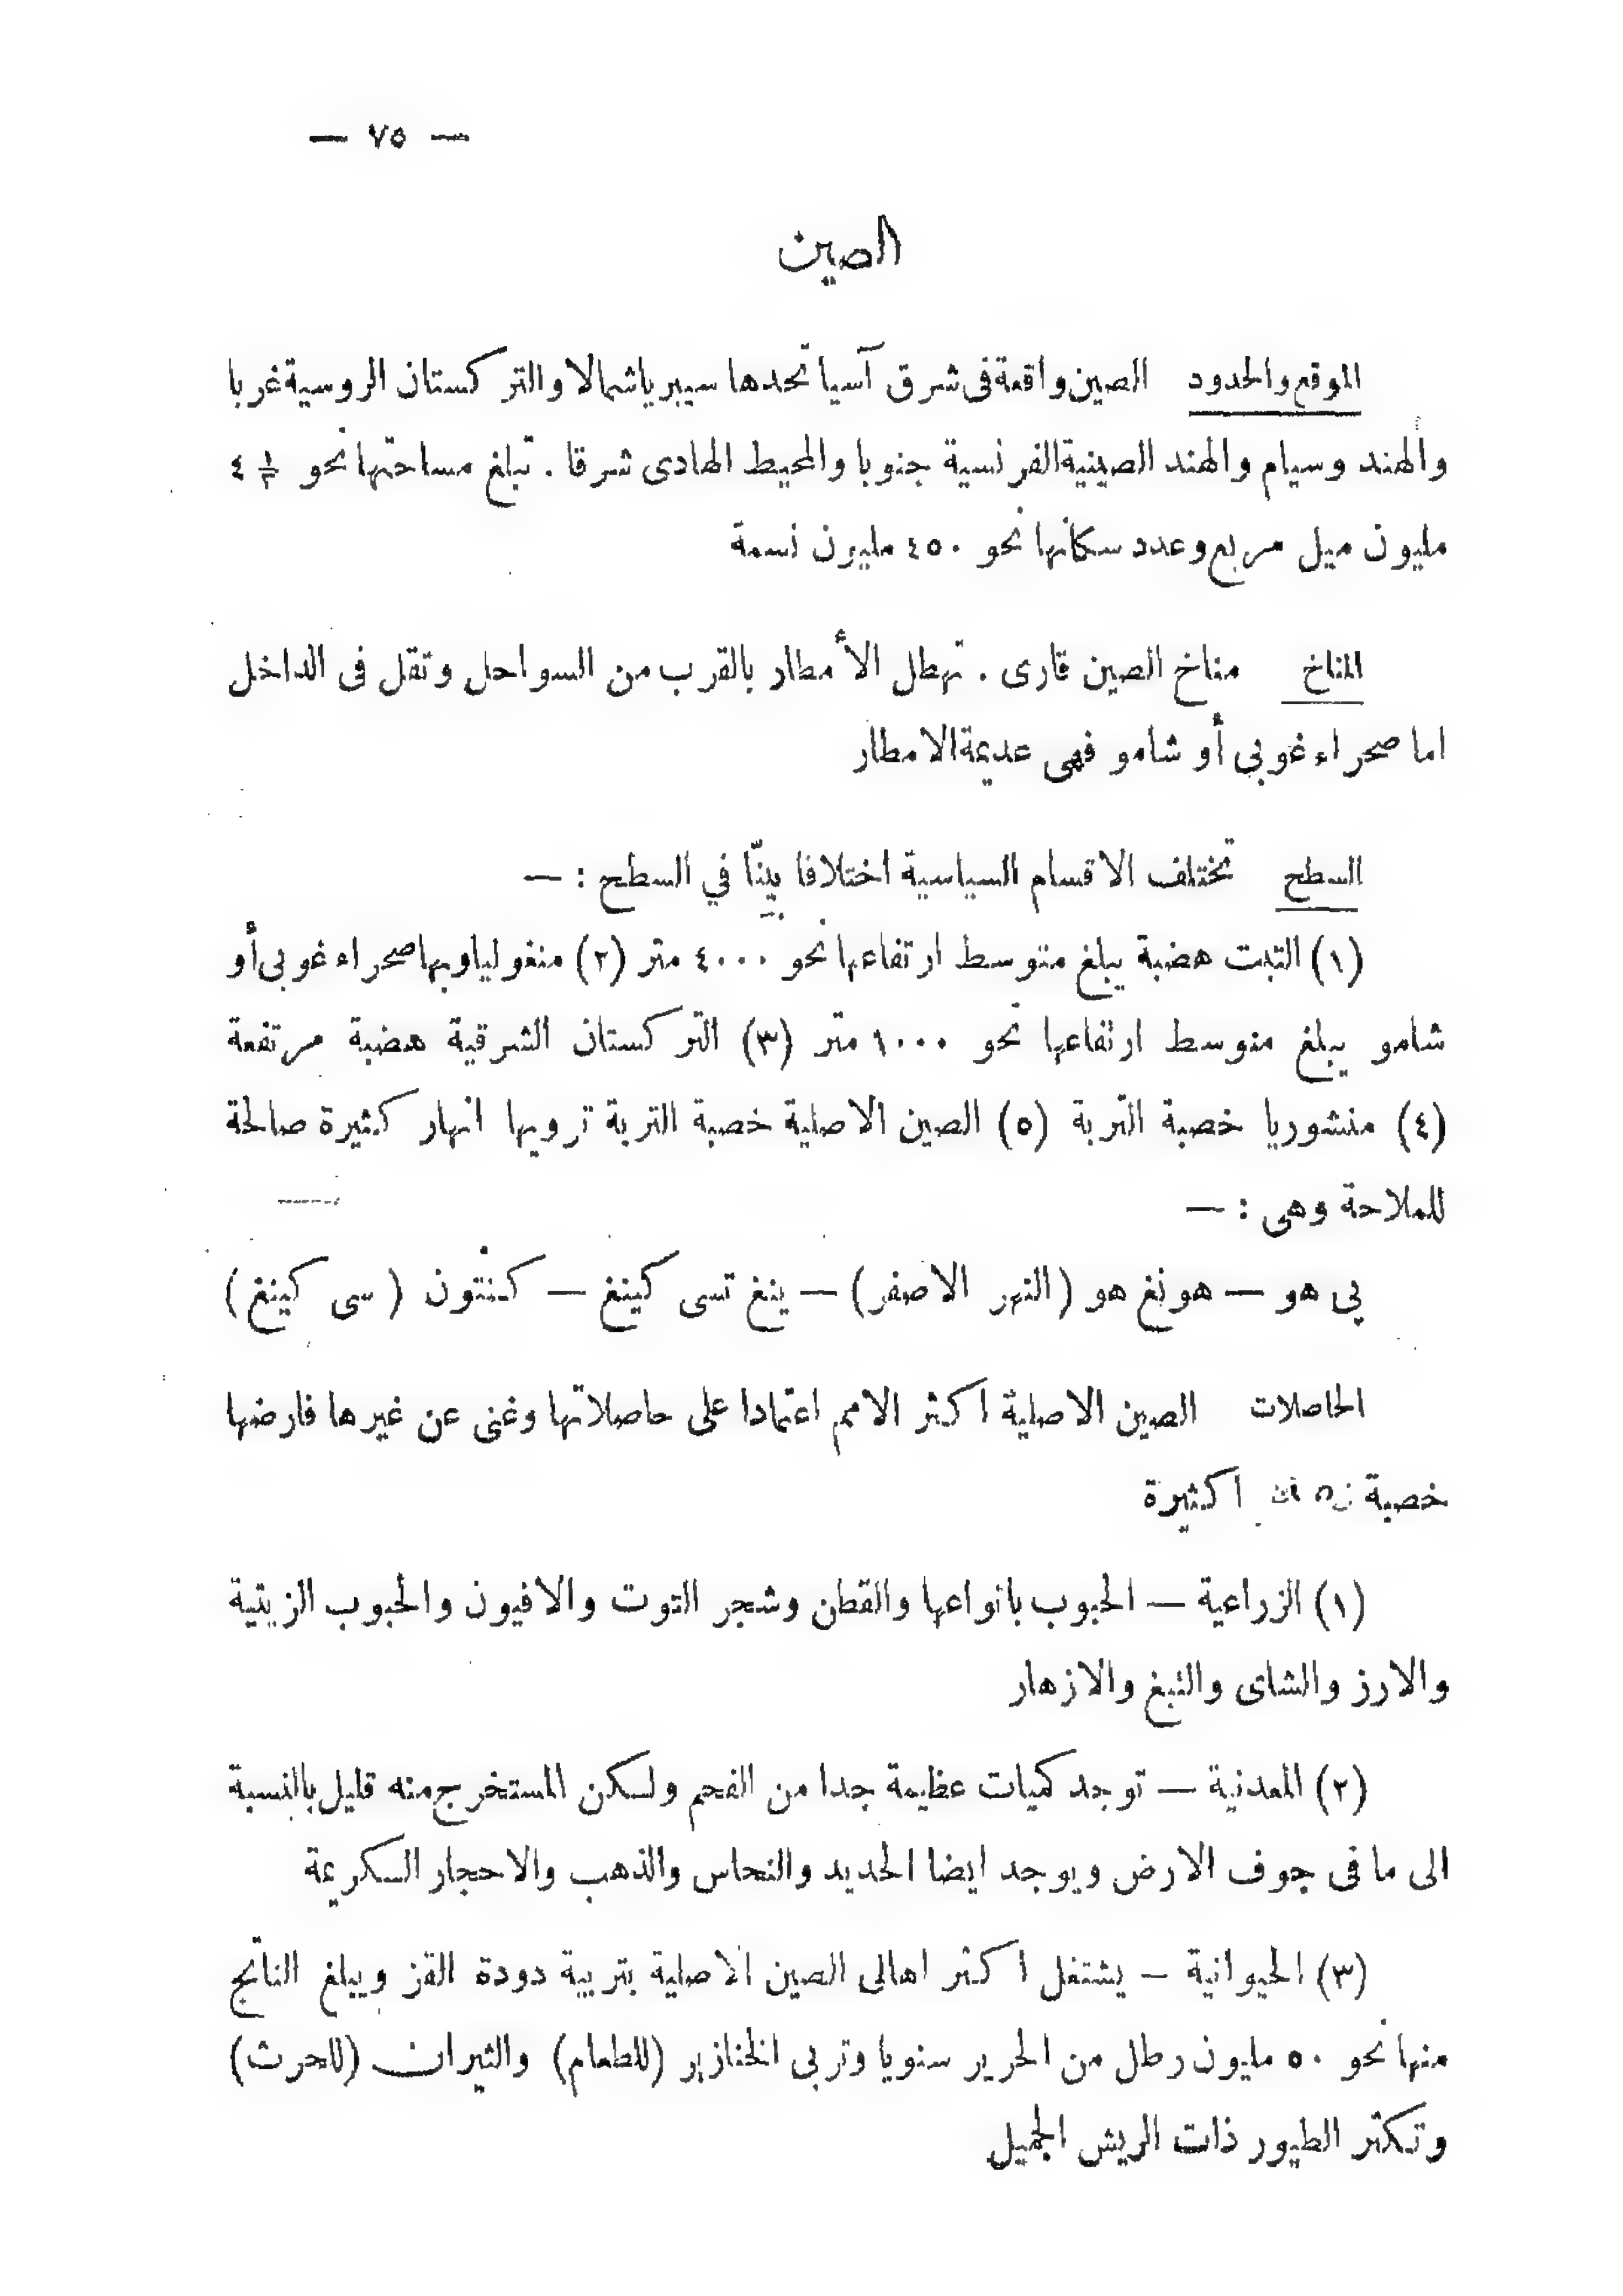 — ٧٥ —
الصين
الموقع والحدود الصين واقعة فى شرق آسيا تحدها سيبريا شمالا والتركستان الروسية غربا
والهند وسيام والهند الصينية الفرنسية جنوبا والمحيط الهادى شرقا . تبلغ مساحتها نحو ٤ ١/٢
مليون ميل مربع وعدد سكانها نحو ٤٥٠ مليون نسمة
المناخ مناخ الصين قارى . تهطل الأمطار بالقرب من السواحل وتقل فى الداخل
اما صحراء غوبى أو شامو فهى عديمة الامطار
السطح تختلف الاقسام السياسية اختلافا بينّا في السطح : —
(١) التبت هضبة يبلغ متوسط ارتفاعها نحو ٤٠٠٠ متر (٢) منغوليا وبها صحراء غوبى أو
شامو يبلغ متوسط ارتفاعها نحو ١٠٠٠ متر (٣) التركستان الشرقية هضبة مرتفعة
(٤) منشوريا خصبة التربة (٥) الصين الاصلية خصبة التربة ترويها انهار كثيرة صالحة
للملاحة وهى : —
پى هو — هونغ هو (النهر الاصفر) — ينغ تسى كينغ — كنتون ( سى كينغ)
الحاصلات الصين الاصلية اكثر الامم اعتمادا على حاصلاتها وغنى عن غيرها فارضها
خصبة كثيرة
(١) الزراعية — الحبوب بانواعها والقطن وشجر التوت والافيون والحبوب الزيتية
والارز والشاى والتبغ والازهار
(٢) المعدنية — توجد كميات عظيمة جدا من الفحم ولكن المستخرج منه قليل بالنسبة
الى ما فى جوف الارض ويوجد ايضا الحديد والنحاس والذهب والاحجار الكريمة
(٣) الحيوانية – يشتغل اكثر اهالى الصين الاصلية بتربية دودة القز ويبلغ الناتج
منها نحو ٥٠ مليون رطل من الحرير سنويا وتربى الخنازير (للطعام) والثيران (للحرث)
وتكثر الطيور ذات الريش الجميل